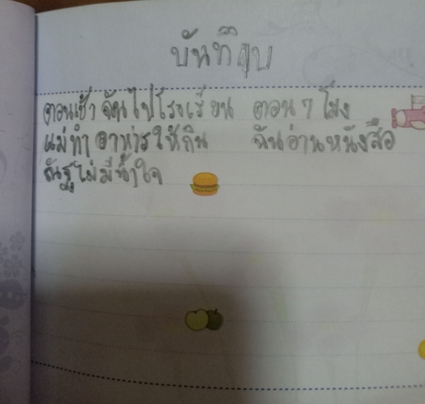 บันทึก
ตอนเช้า ฉันไปโรงเรียน ตอน 7 โมง
แม่ทำอาหารให้กิน ฉันอ่านหนังสือ
ไม่มีน้ำใจ